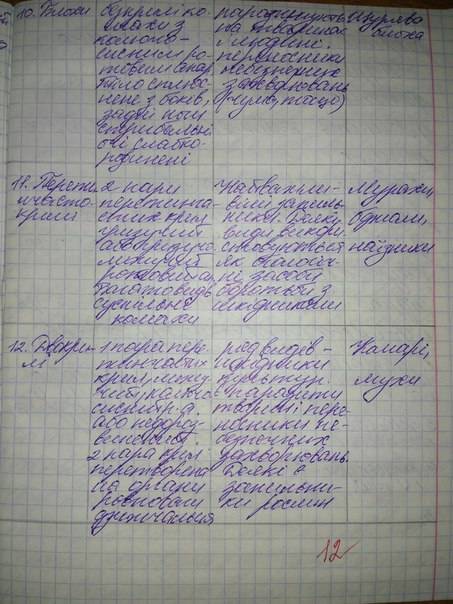 10. Блохи
комахи з
колючо-
сисним ро-
товим апар.
Тіло сплюс-
нене з боків,
задні ноги
стрибальні
очі слабко-
розвинені
паразитують
на тваринах
і людині.
переносники
небезпечних
захворювань
(чума, тощо)
Щуряча
блоха
11. Перетин
часто
крилі
2 пари
перетинча-
стих крил
гризучий
або гризучо-
лижучий
багато видів
суспільні
комахи
Найважли-
віші запиль-
ники. Деякі
види викори-
стовуються
як біологіч-
ні засоби
боротьби з
шкідниками
Мурахи,
бджоли,
наїздники
12. Двокри-
лі
1 пара пере-
тинчастих
крил, лижу-
чий, колючо-
сисний р. а.
або недороз-
винений.
2 пара крил
перетворена
на органи
рівноваги
дзижчальця
ряд видів -
шкідники
культур.
паразити
тварин і пере-
носники не-
безпечних
захворювань.
Деякі є
запильни-
ки рослин
Комарі,
мухи
12